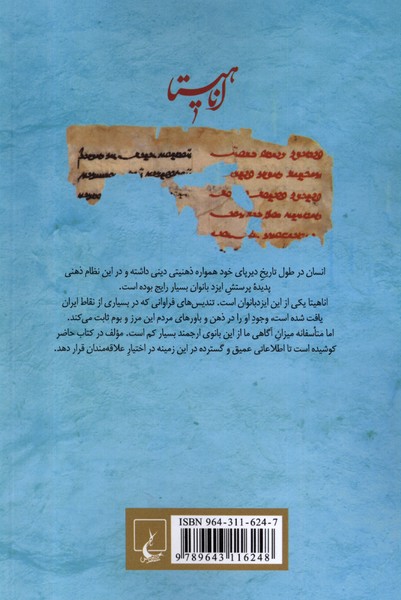 آناهیتا
انسان در طول تاریخِ دیرپای خود همواره ذهنیتی دینی داشته و در این نظام ذهنی
پدیدهٔ پرستشِ ایزد بانوان بسیار رایج بوده است.
اناهیتا یکی از این ایزدبانوان است. تندیس‌های فراوانی که در بسیاری از نقاط ایران
یافت شده است، وجودِ او را در ذهن و باورهای مردم این مرز و بوم ثابت می‌کند.
اما متأسفانه میزانِ آگاهی ما از این بانوی ارجمند بسیار کم است. مؤلف در کتاب حاضر
کوشیده است تا اطلاعاتی عمیق و گسترده در این زمینه در اختیارِ علاقه‌مندان قرار دهد.
ISBN 964-311-624-7
9 789643 116248